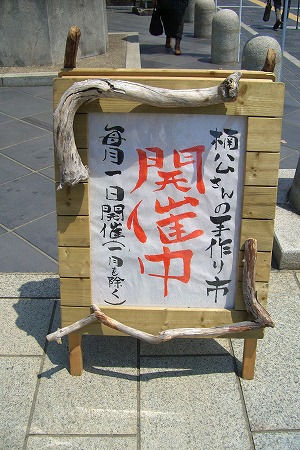 楠公さんの手作り市
開催中
毎月一日開催(一月を除く)